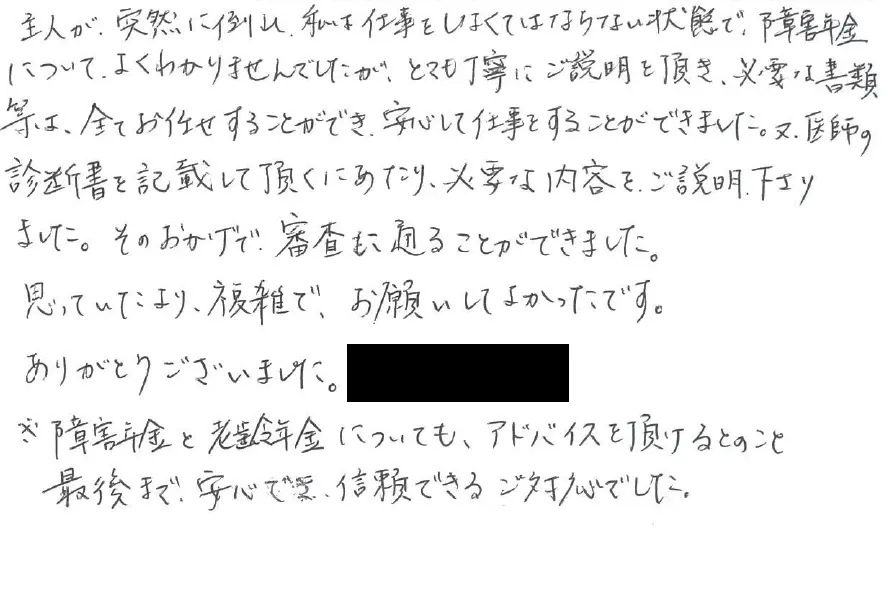 主人が、突然に倒れ、私は仕事をしなくてはならない状態で、障害年金
について、よくわかりませんでしたが、とても丁寧にご説明を頂き、必要な書類
等は、全てお任せすることができ、安心して仕事をすることができました。又、医師の
診断書を記載して頂くにあたり、必要な内容を、ご説明、下さり
ました。そのおかげで、審査も通ることができました。
思っていたより、複雑で、お願いしてよかったです。
ありがとうございました。
※障害年金と老齢年金についても、アドバイスを頂けるとのこと
最後まで、安心で、信頼できるご対応でした。